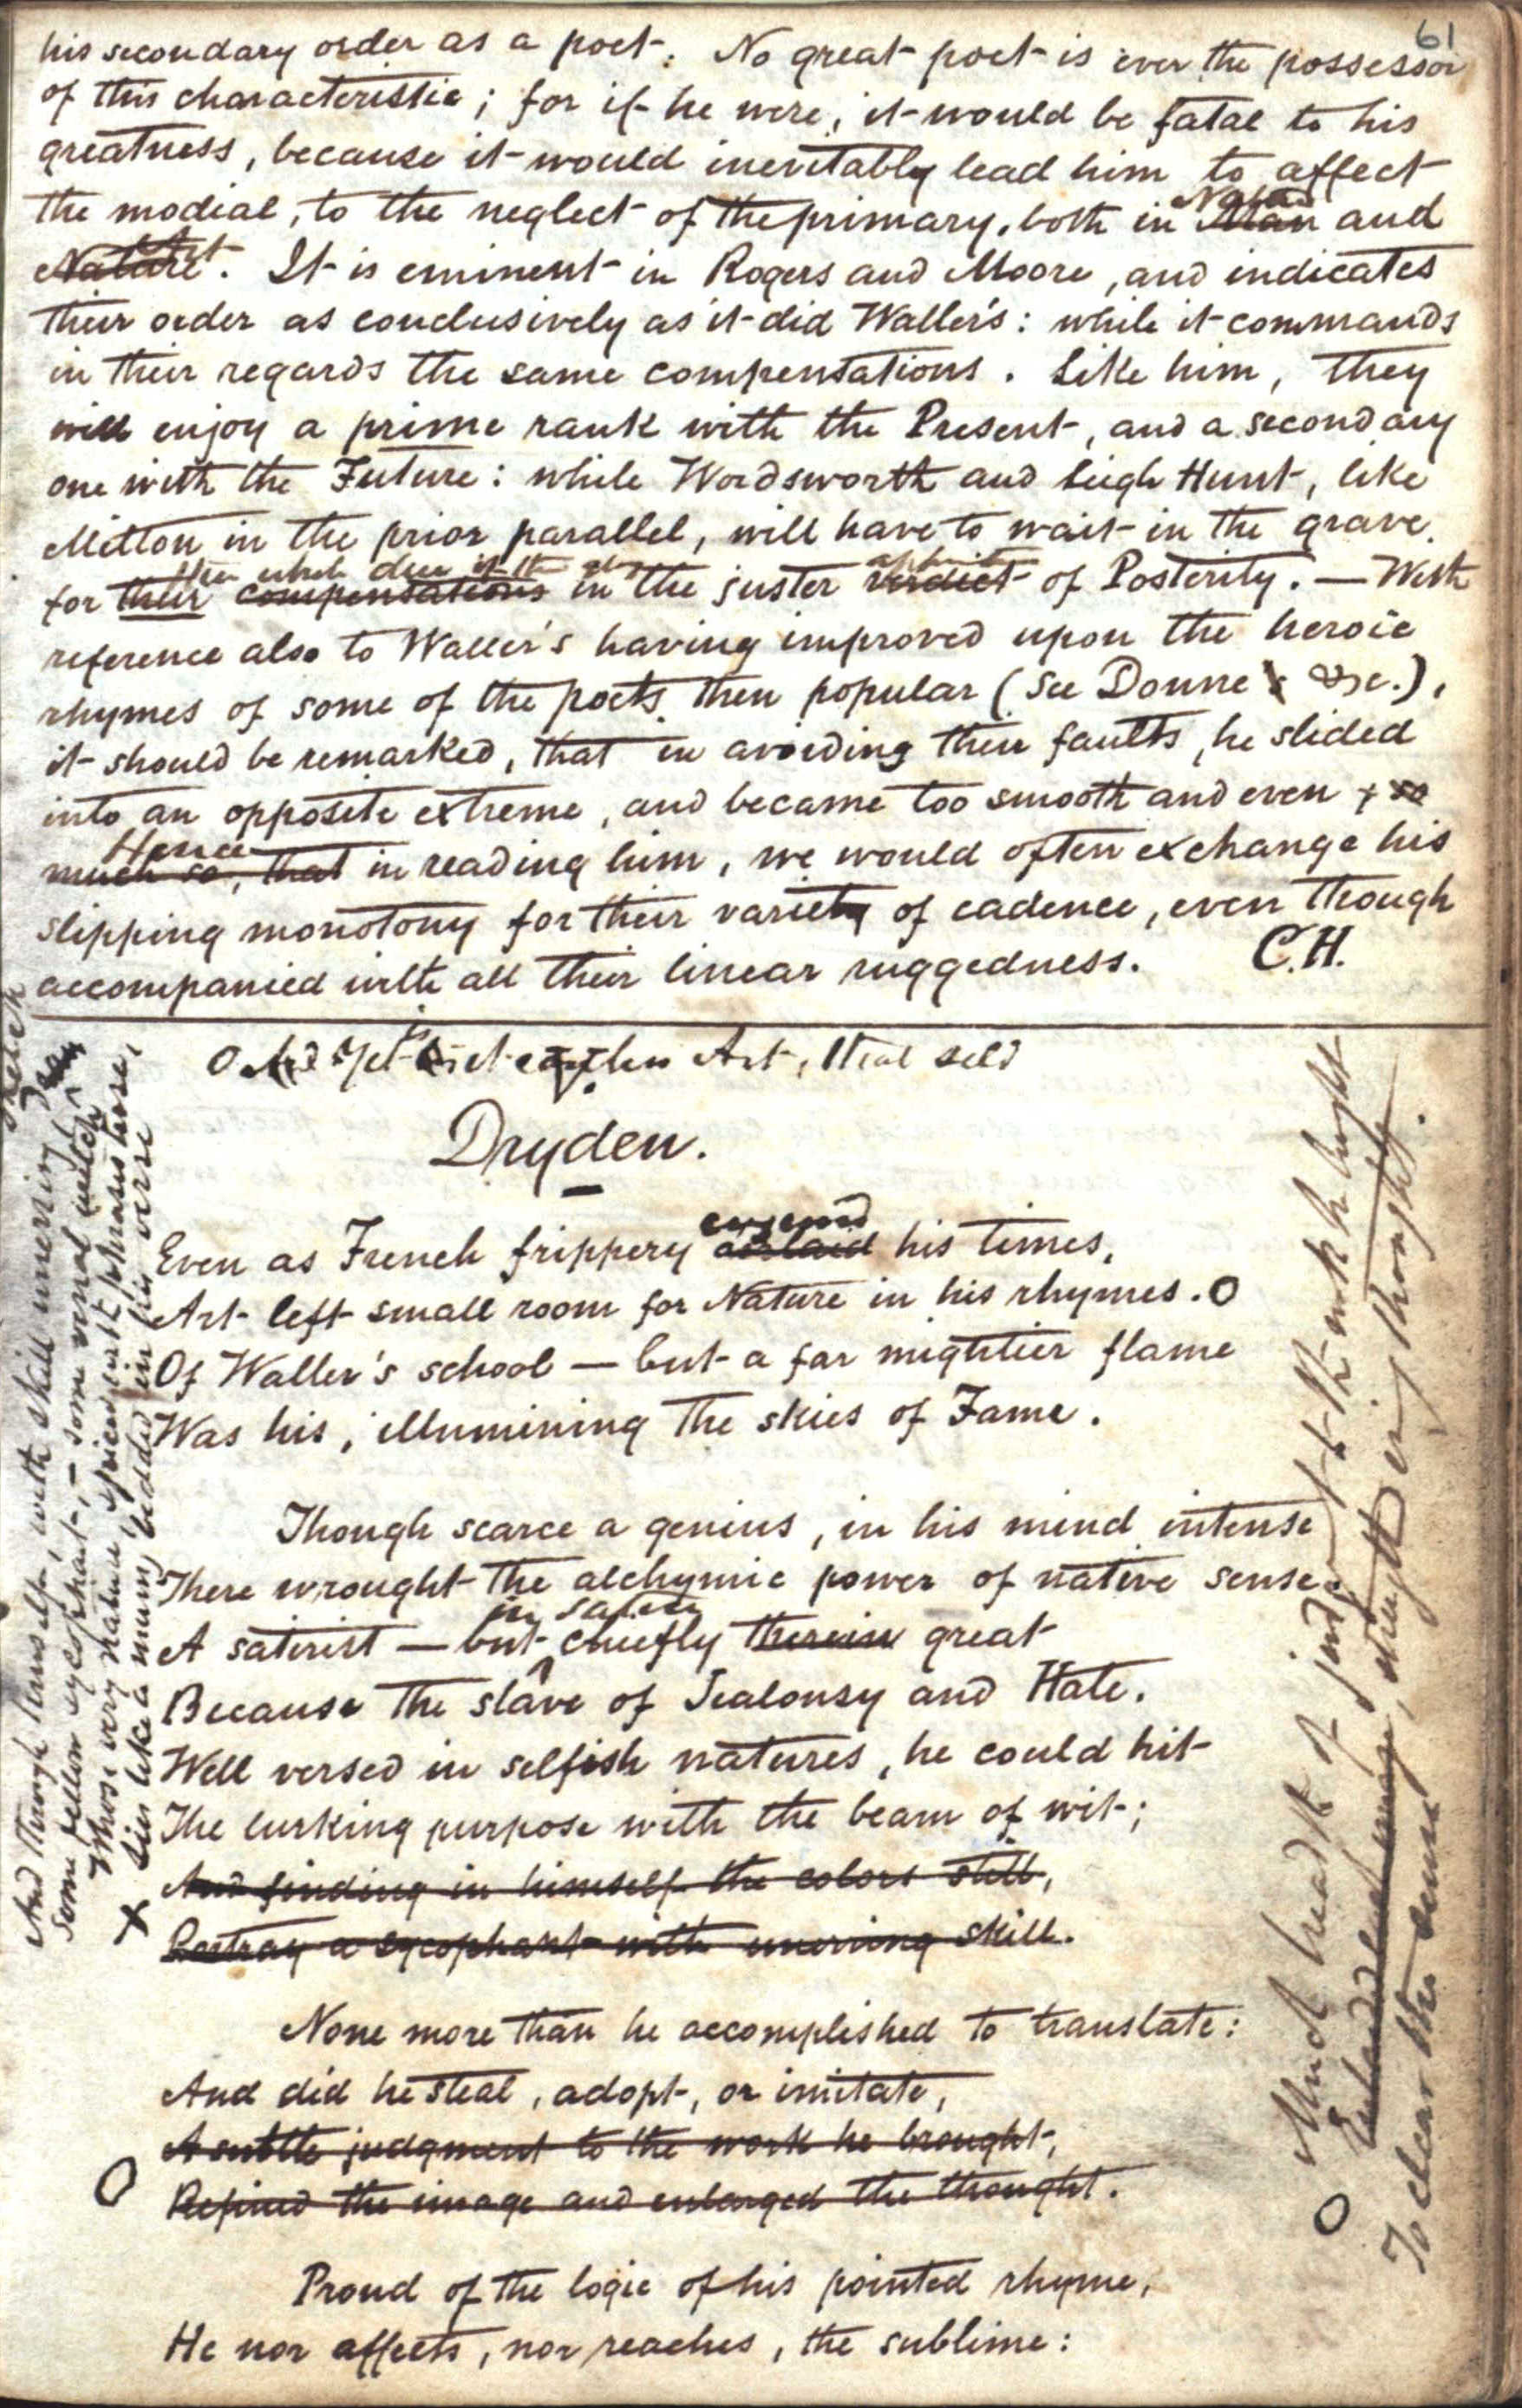 61
his secondary order as a poet. No great poet is ever the possessor
of this characteristic; for if he were, it would be fatal to his
greatness, because it would inevitably lead him to affect
the modial, to the neglect of the primary, both in Nature Man and
Nature Art. It is eminent in Rogers and Moore, and indicates
their order as conclusively as it did Waller's: while it commands
in their regards the same compensations. Like him, they
will enjoy a prime rank with the Present, and a secondary
one with the Future: while Wordsworth and Leigh Hunt, like
Milton in the prior parallel, will have to wait in the grave
for their compensations in the juster verdict of Posterity. — With
reference also to Waller's having improved upon the heroic
rhymes of some of the poets then popular (See Donne &c.),
it should be remarked, that in avoiding their faults, he slided
into an opposite extreme, and became too smooth and even + so
Hence
much so, that in reading him, we would often exchange his
slipping monotony for their variety of cadence, even though
accompanied with all their linear ruggedness. C.H.
Art, that
Dryden.
Even as French frippery overlaid his times,
Art left small room for Nature in his rhymes. O
Of Waller's school — but a far mightier flame
Was his, illumining the skies of Fame.
Though scarce a genius, in his mind intense
There wrought the alchymic power of native sense.
in satire
A satirist — but chiefly therein great
Because the slave of Jealousy and Hate.
Well versed in selfish natures, he could hit
The lurking purpose with the beam of wit;
And finding in himself the colors still,
Portray a sycophant with unerring skill.
None more than he accomplished to translate:
And did he steal, adopt, or imitate,
A subtle judgment to the work he brought,
O Refined the image and enlarged the thought.
Proud of the logic of his pointed rhyme,
He nor affects, nor reaches, the sublime:
And though himself, with skill unerring
Some fellow sycophant, — some venal
Whose very nature spiced with phrases
X Lies like a mummy bedded in his verse
O Much breadth of judgment to the work he brought
Enlarged the image, strengthening thought.
To clear the sense